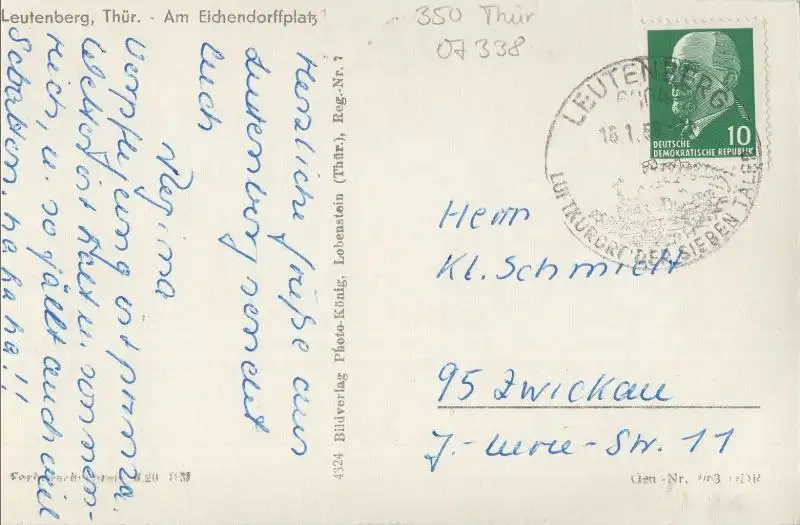 Leutenberg, Thür. · Am Eichendorffplatz
350 Thür
07338
Herzliche Grüße aus
Leutenberg sendet
Euch
Regina
Verpflegung ist prima.
Wetter ist kalt u. sonnen-
reich, u. so gefällt auch viel
Schatten. ha ha ha!!
4324 Bildverlag Photo-König, Lobenstein (Thür.), Reg.-Nr. 7
LEUTENBERG
18.1.6
LUFTKURORT DER SIEBEN TÄLER
10
DEUTSCHE
DEMOKRATISCHE REPUBLIK
Herrn
Kl. Schmidt
95 Zwickau
J.-Curie-Str. 11